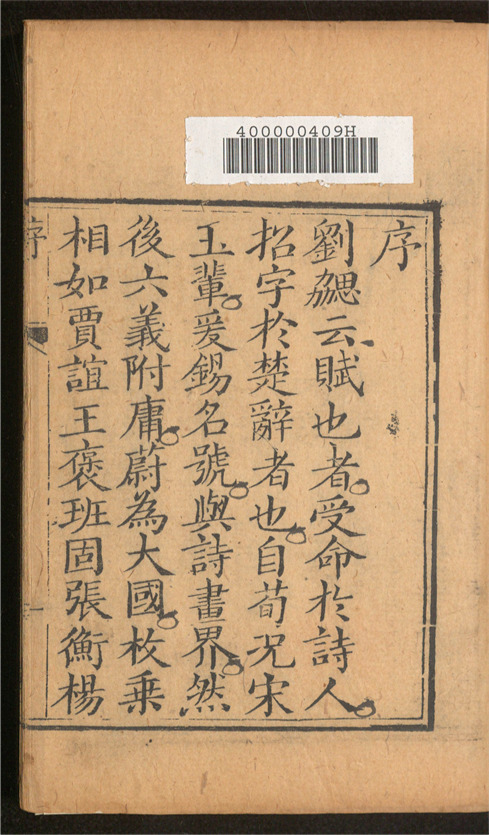 400000409H
序
劉勰云、賦也者。受命於詩人。
招字於楚辭者也。自荀況宋
玉輩。爰錫名號。與詩畫界。然
後六義附庸。蔚為大國。枚乗
相如賈誼王褒班固張衡楊
序